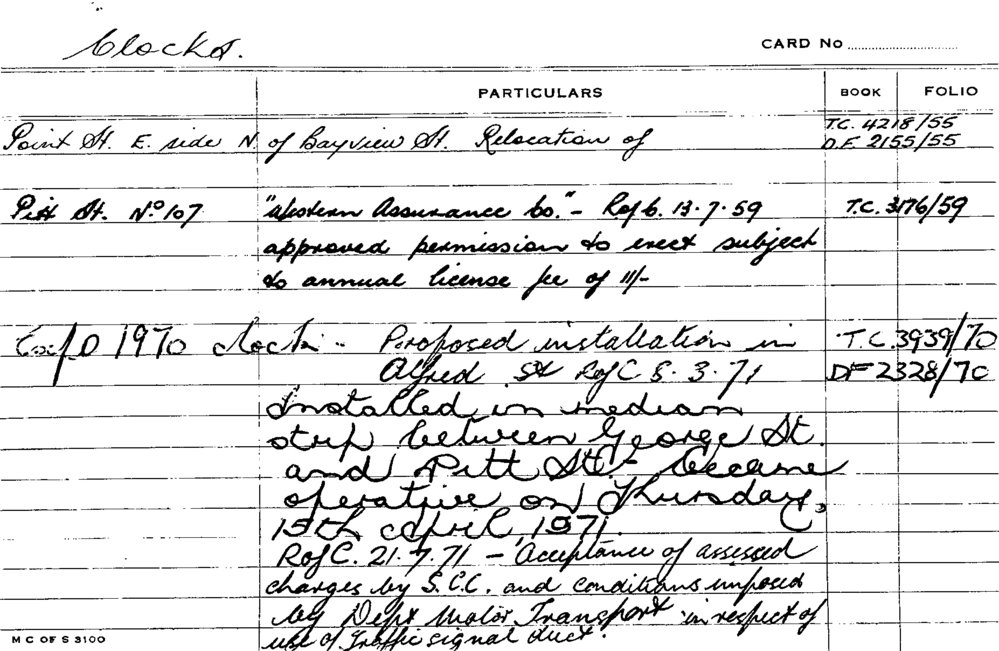 Clocks.
CARD No
PARTICULARS BOOK FOLIO
Point St. E. side N. of Bayview St. Relocation of T.C. 4218/55
D.F. 2155/55
Pitt St. No 107 "Western Assurance Co." - RofC. 13.7.59 T.C. 3176/59
approved permission to erect subject
to annual license fee of 11/-
Expo 1970 clock - Proposed installation in T.C. 3939/70
Alfred St RofC 8.3.71 DF 2328/70
Installed in median
strip between George St.
and Pitt St. - became
operative on Thursday,
15th April, 1971.
RofC. 21.7.71 - Acceptance of assessed
charges by S.C.C. and conditions imposed
by Dept Motor Transport in respect of
use of Traffic signal duct.
M C OF S 3100